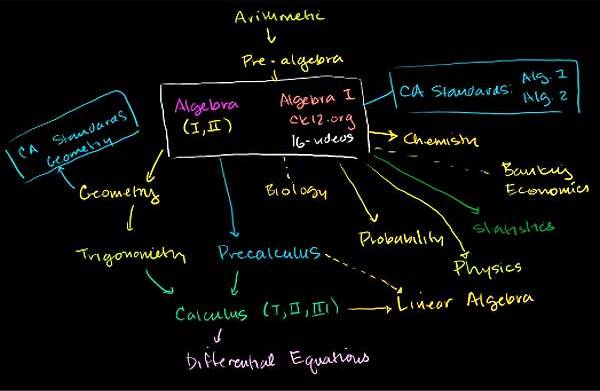 Arithmetic
Pre-algebra
Algebra
(I, II)
Algebra I
ck12.org
16-videos
CA Standards:
Alg. 1
Alg. 2
CA Standards
Geometry
Chemistry
Banking
Economics
Geometry
Biology
Statistics
Probability
Trigonometry
Precalculus
Physics
Calculus (I, II, III)
Linear Algebra
Differential Equations